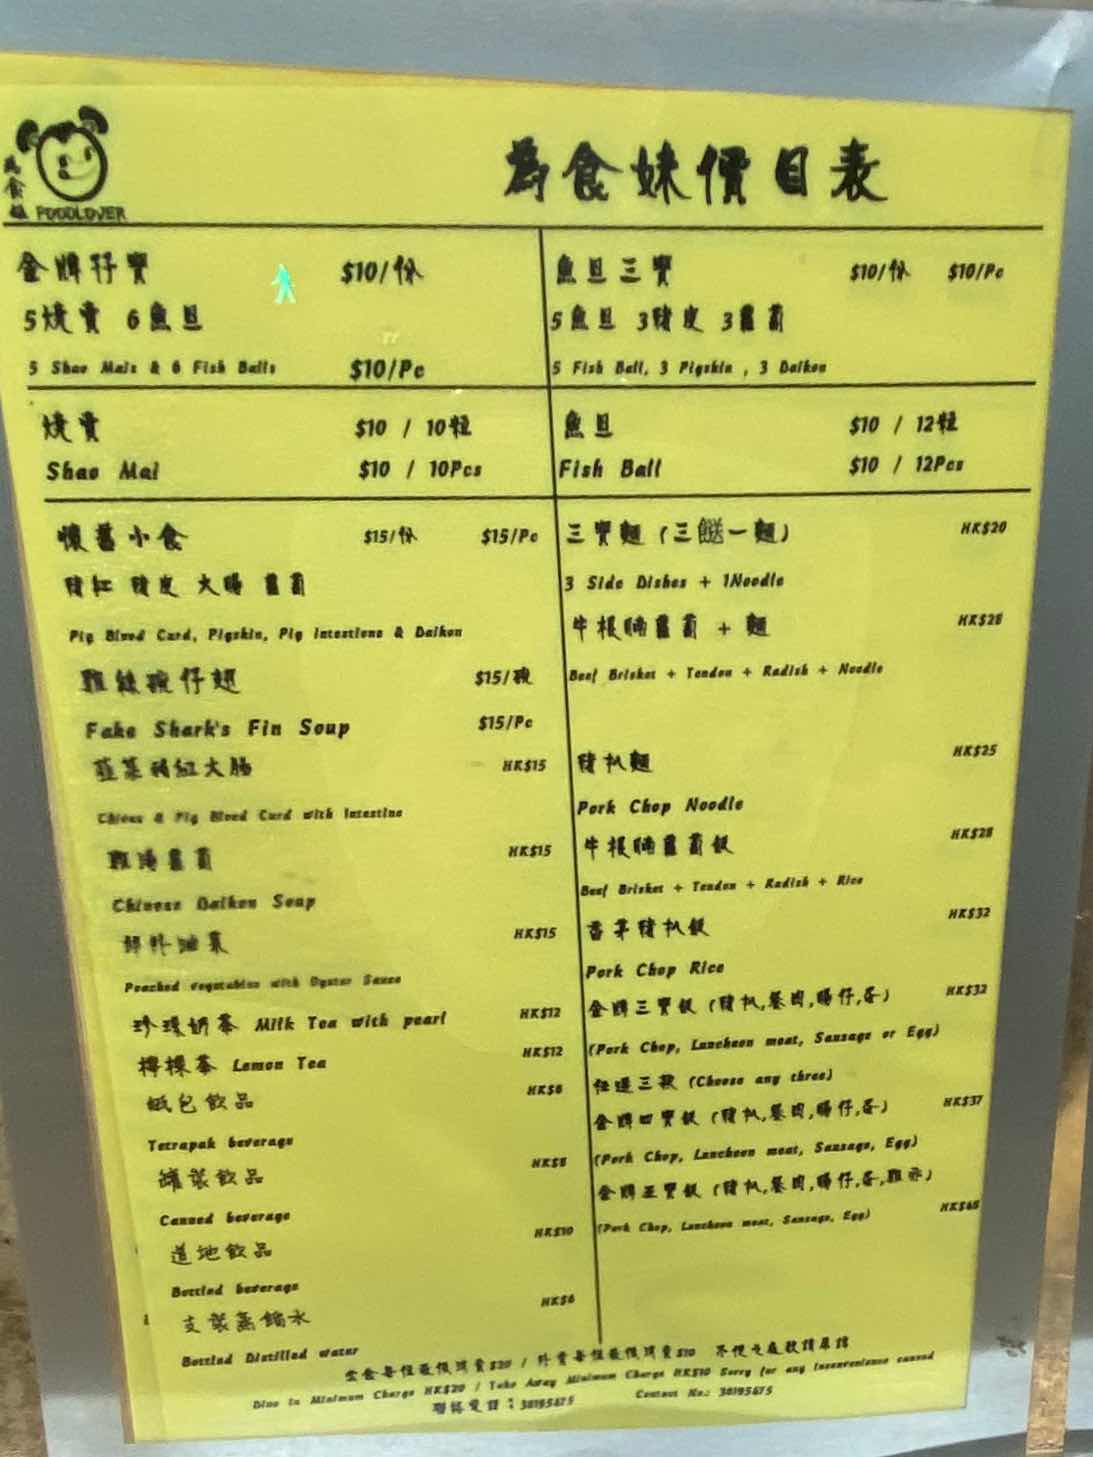 為食妹
FOODLOVER
為食妹價目表
金牌孖寶 $10/份
5燒賣 6魚旦
5 Shao Mais & 6 Fish Balls $10/Pc
燒賣 $10 / 10粒
Shao Mai $10 / 10Pcs
懷舊小食 $15/份 $15/Pc
豬紅 豬皮 大腸 蘿蔔
Pig Blood Curd, Pigskin, Pig Intestione & Daikon
雞絲碗仔翅 $15/碗
Fake Shark's Fin Soup $15/Pc
韮菜豬紅大腸 HK$15
Chives & Pig Blood Curd with Intestine
雞湯蘿蔔 HK$15
Chinese Daikon Soup
郊外油菜 HK$15
Poached vegetables with Oyster Sauce
珍珠奶茶 Milk Tea with pearl HK$12
檸檬茶 Lemon Tea HK$12
紙包飲品 HK$6
Tetrapak beverage
罐裝飲品 HK$8
Canned beverage
道地飲品 HK$10
Bottled beverage
支裝蒸餾水 HK$6
Bottled Distilled water
魚旦三寶 $10/份 $10/Pc
5魚旦 3豬皮 3蘿蔔
5 Fish Ball, 3 Pigskin , 3 Daikon
魚旦 $10 / 12粒
Fish Ball $10 / 12Pcs
三寶麵 (三餸一麵) HK$20
3 Side Dishes + 1Noodle
牛根腩蘿蔔 + 麵 HK$28
Beef Brisket + Tendon + Radish + Noodle
豬扒麵 HK$25
Pork Chop Noodle
牛根腩蘿蔔飯 HK$28
Beef Brisket + Tendon + Radish + Rice
香茅豬扒飯 HK$32
Pork Chop Rice
金牌三寶飯 (豬扒,餐肉,腸仔,蛋) HK$32
(Pork Chop, Luncheon meat, Sausage or Egg)
任選三款 (Choose any three)
金牌四寶飯 (豬扒,餐肉,腸仔,蛋) HK$37
(Pork Chop, Luncheon meat, Sausage, Egg)
金牌五寶飯 (豬扒,餐肉,腸仔,蛋,雞亦)
(Pork Chop, Luncheon meat, Sausage, Egg)
堂食每位最低消費$20 / 外賣每位最低消費$10 不便之處敬請原諒
Dine In Minimum Charge HK$20 / Take Away Minimum Charge HK$10 Sorry for any inconvenience caused
聯絡電話：30195675 Contact No.: 30195675